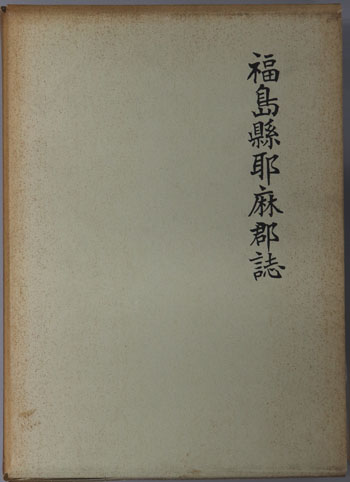 福島縣耶麻郡誌